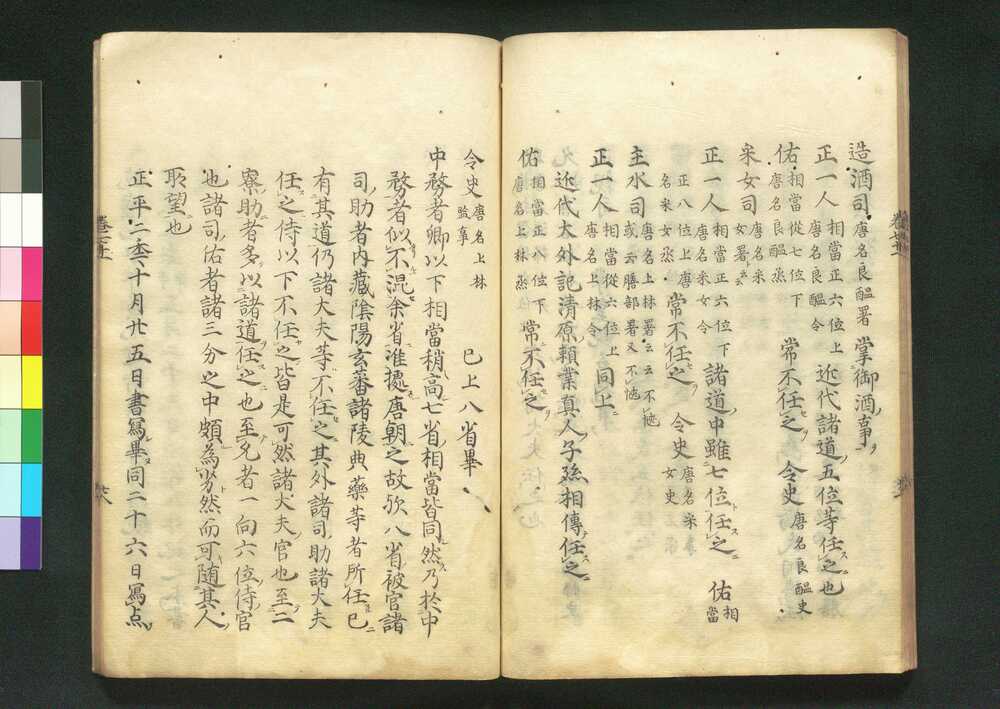 造酒司唐名良醞署掌御酒事
正一人相當正六位上唐名良醞令近代諸道五位等任之也
佑相當從七位下唐名良醞丞常不任之令史唐名良醞史
采女司唐名采女署
正一人相當正六位下唐名采女令諸道中雖七位任之佑相當
正八位上唐名采女丞常不任之令史唐名采女史
主水司唐名上林署云云或云膳部署又不慥
正一人相當從六位上唐名上林令同上
近代大外記清原頼業真人子孫相傳任之
佑相當正八位下唐名上林丞常不任之
令史唐名上林監事已上八省畢
中務者卿以下相當稍高七省相當皆同然乃於中
務者似不混余省准擾唐朝之故欤八省被官諸
司助者内藏陰陽玄蕃諸陵典藥等者所任已
有其道仍諸大夫等不任之其外諸司助諸大夫
任之侍以下不任之皆是可然諸大夫官也至二
寮助者多以諸道任之也至允者一向六位侍官
也諸司佑者諸三分之中頗為劣然而可随其人
所望也
正平二十六十月廿五日書寫畢同二十六日寫点